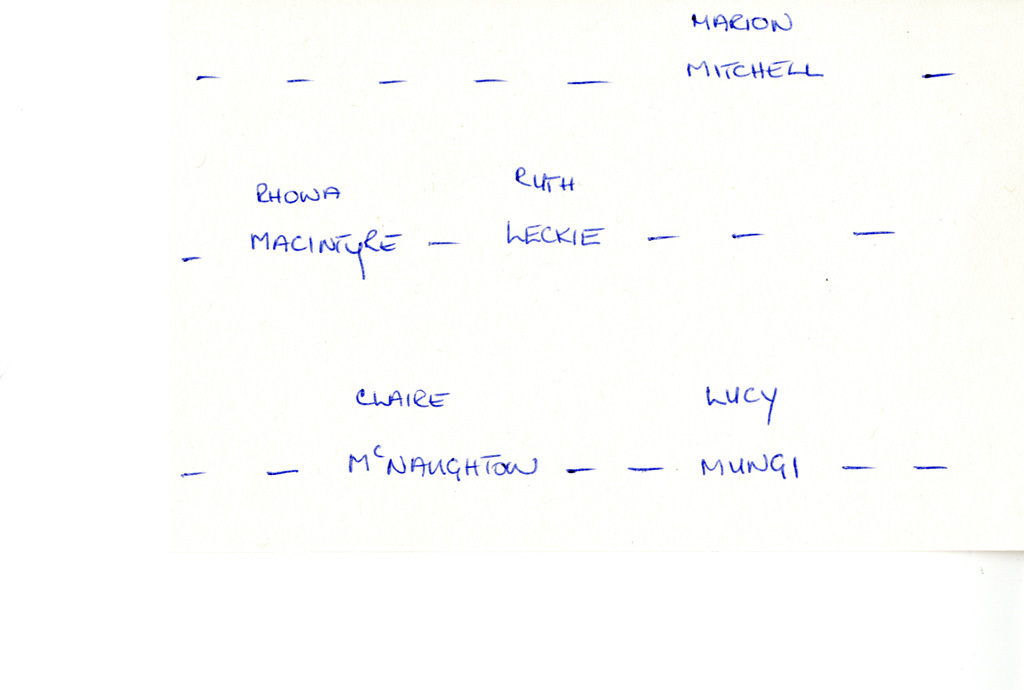 MARION
– – – – – MITCHELL –
RHOWA RUTH
– MACINTYRE – LECKIE – – –
CLAIRE LUCY
– – McNAUGHTON – – MUNGI – –